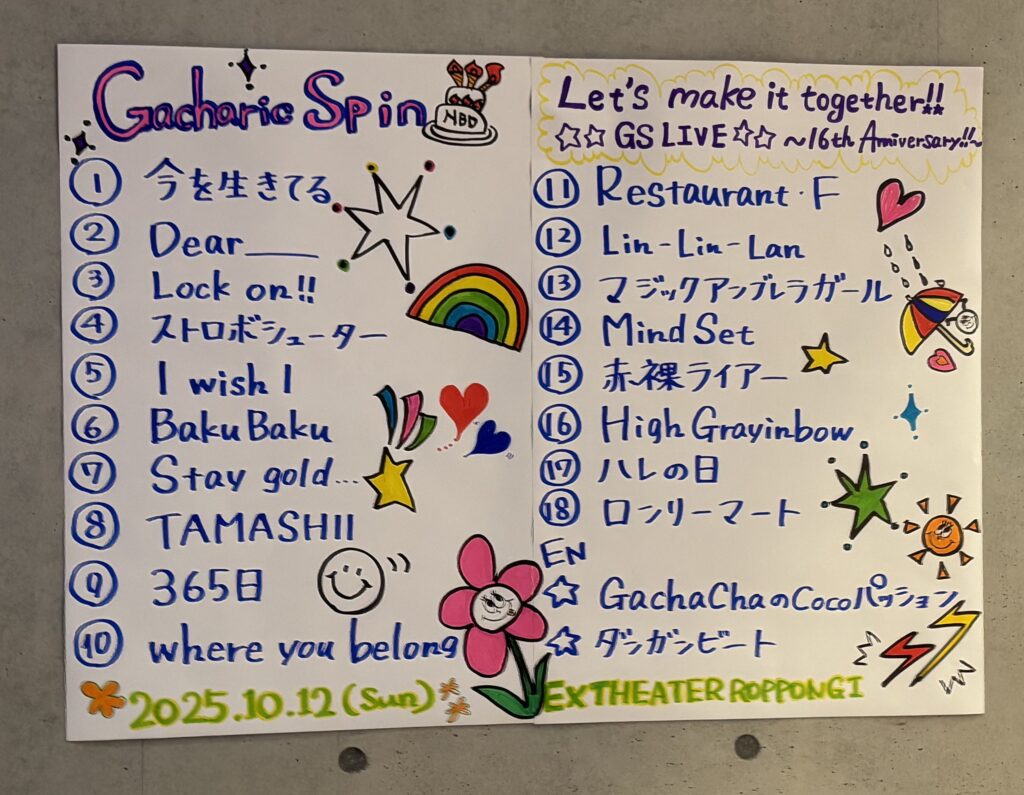 Gacharic Spin
HBD
① 今を生きてる
② Dear____
③ Lock on!!
④ ストロボシューター
⑤ I wish I
⑥ BakuBaku
⑦ Stay gold...
⑧ TAMASHII
⑨ 365日
⑩ where you belong
2025.10.12(Sun)
Let's make it together!!
☆☆ GS LIVE ☆☆ ~16th Anniversary!!~
⑪ Restaurant・F
⑫ Lin-Lin-Lan
⑬ マジックアンブレラガール
⑭ Mind Set
⑮ 赤裸ライアー
⑯ High Grayinbow
⑰ ハレの日
⑱ ロンリーマート
EN
☆ GachaChaのCocoパッション
☆ ダンガンビート
EXTHEATER ROPPONGI